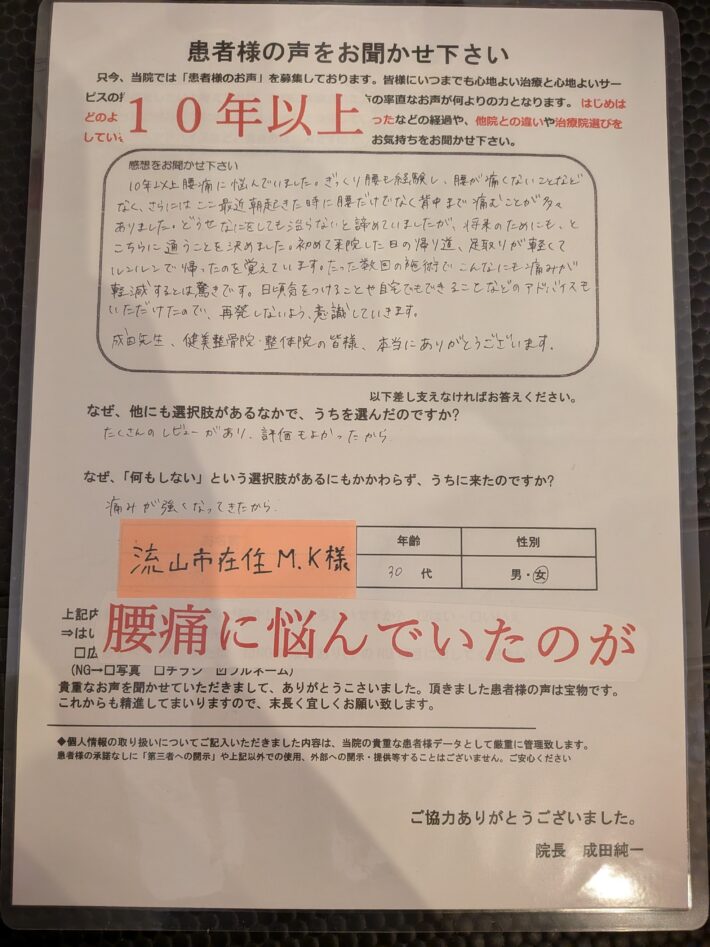 患者様の声をお聞かせ下さい
只今、当院では「患者様のお声」を募集しております。皆様にいつまでも心地よい治療と心地よいサー
ビスの
の率直なお声が何よりの力となります。はじめは
どのよ
ったなどの経過や、他院との違いや治療院選びを
してい
お気持ちをお聞かせ下さい。
10年以上
感想をお聞かせ下さい
10年以上腰痛に悩んでいました。ぎっくり腰も経験し、腰が痛くないことなど
なく、さらにはここ最近朝起きた時に腰だけでなく背中まで痛むことが多々
ありました。どうせなにをしても治らないと諦めていましたが、将来のためにも、と
こちらに通うことを決めました。初めて来院した日の帰り道、足取りが軽くて
ルンルンで帰ったのを覚えています。たった数回の施術でこんなにも痛みが
軽減するとは驚きです。日頃気をつけることや自宅でもできることなどのアドバイスも
いただけたので、再発しないよう、意識していきます。
成田先生、健美整骨院・整体院の皆様、本当にありがとうございます。
以下差し支えなければお答えください。
なぜ、他にも選択肢があるなかで、うちを選んだのですか?
たくさんのレビューがあり、評価もよかったから
なぜ、「何もしない」という選択肢があるにもかかわらず、うちに来たのですか?
痛みが強くなってきたから
流山市在住M.K様
年齢 性別
30 代 男・女
上記内
⇒はい
腰痛に悩んでいたのが
□広
(NG→□写真 □チラシ ☑フルネーム)
貴重なお声を聞かせていただきまして、ありがとうこさいました。頂きました患者様の声は宝物です。
これからも精進してまいりますので、末長く宜しくお願い致します。
◆個人情報の取り扱いについてご記入いただきました内容は、当院の貴重な患者様データとして厳重に管理致します。
患者様の承諾なしに「第三者への開示」や上記以外での使用、外部への開示・提供等することはございません。ご安心ください
ご協力ありがとうございました。
院長 成田純一